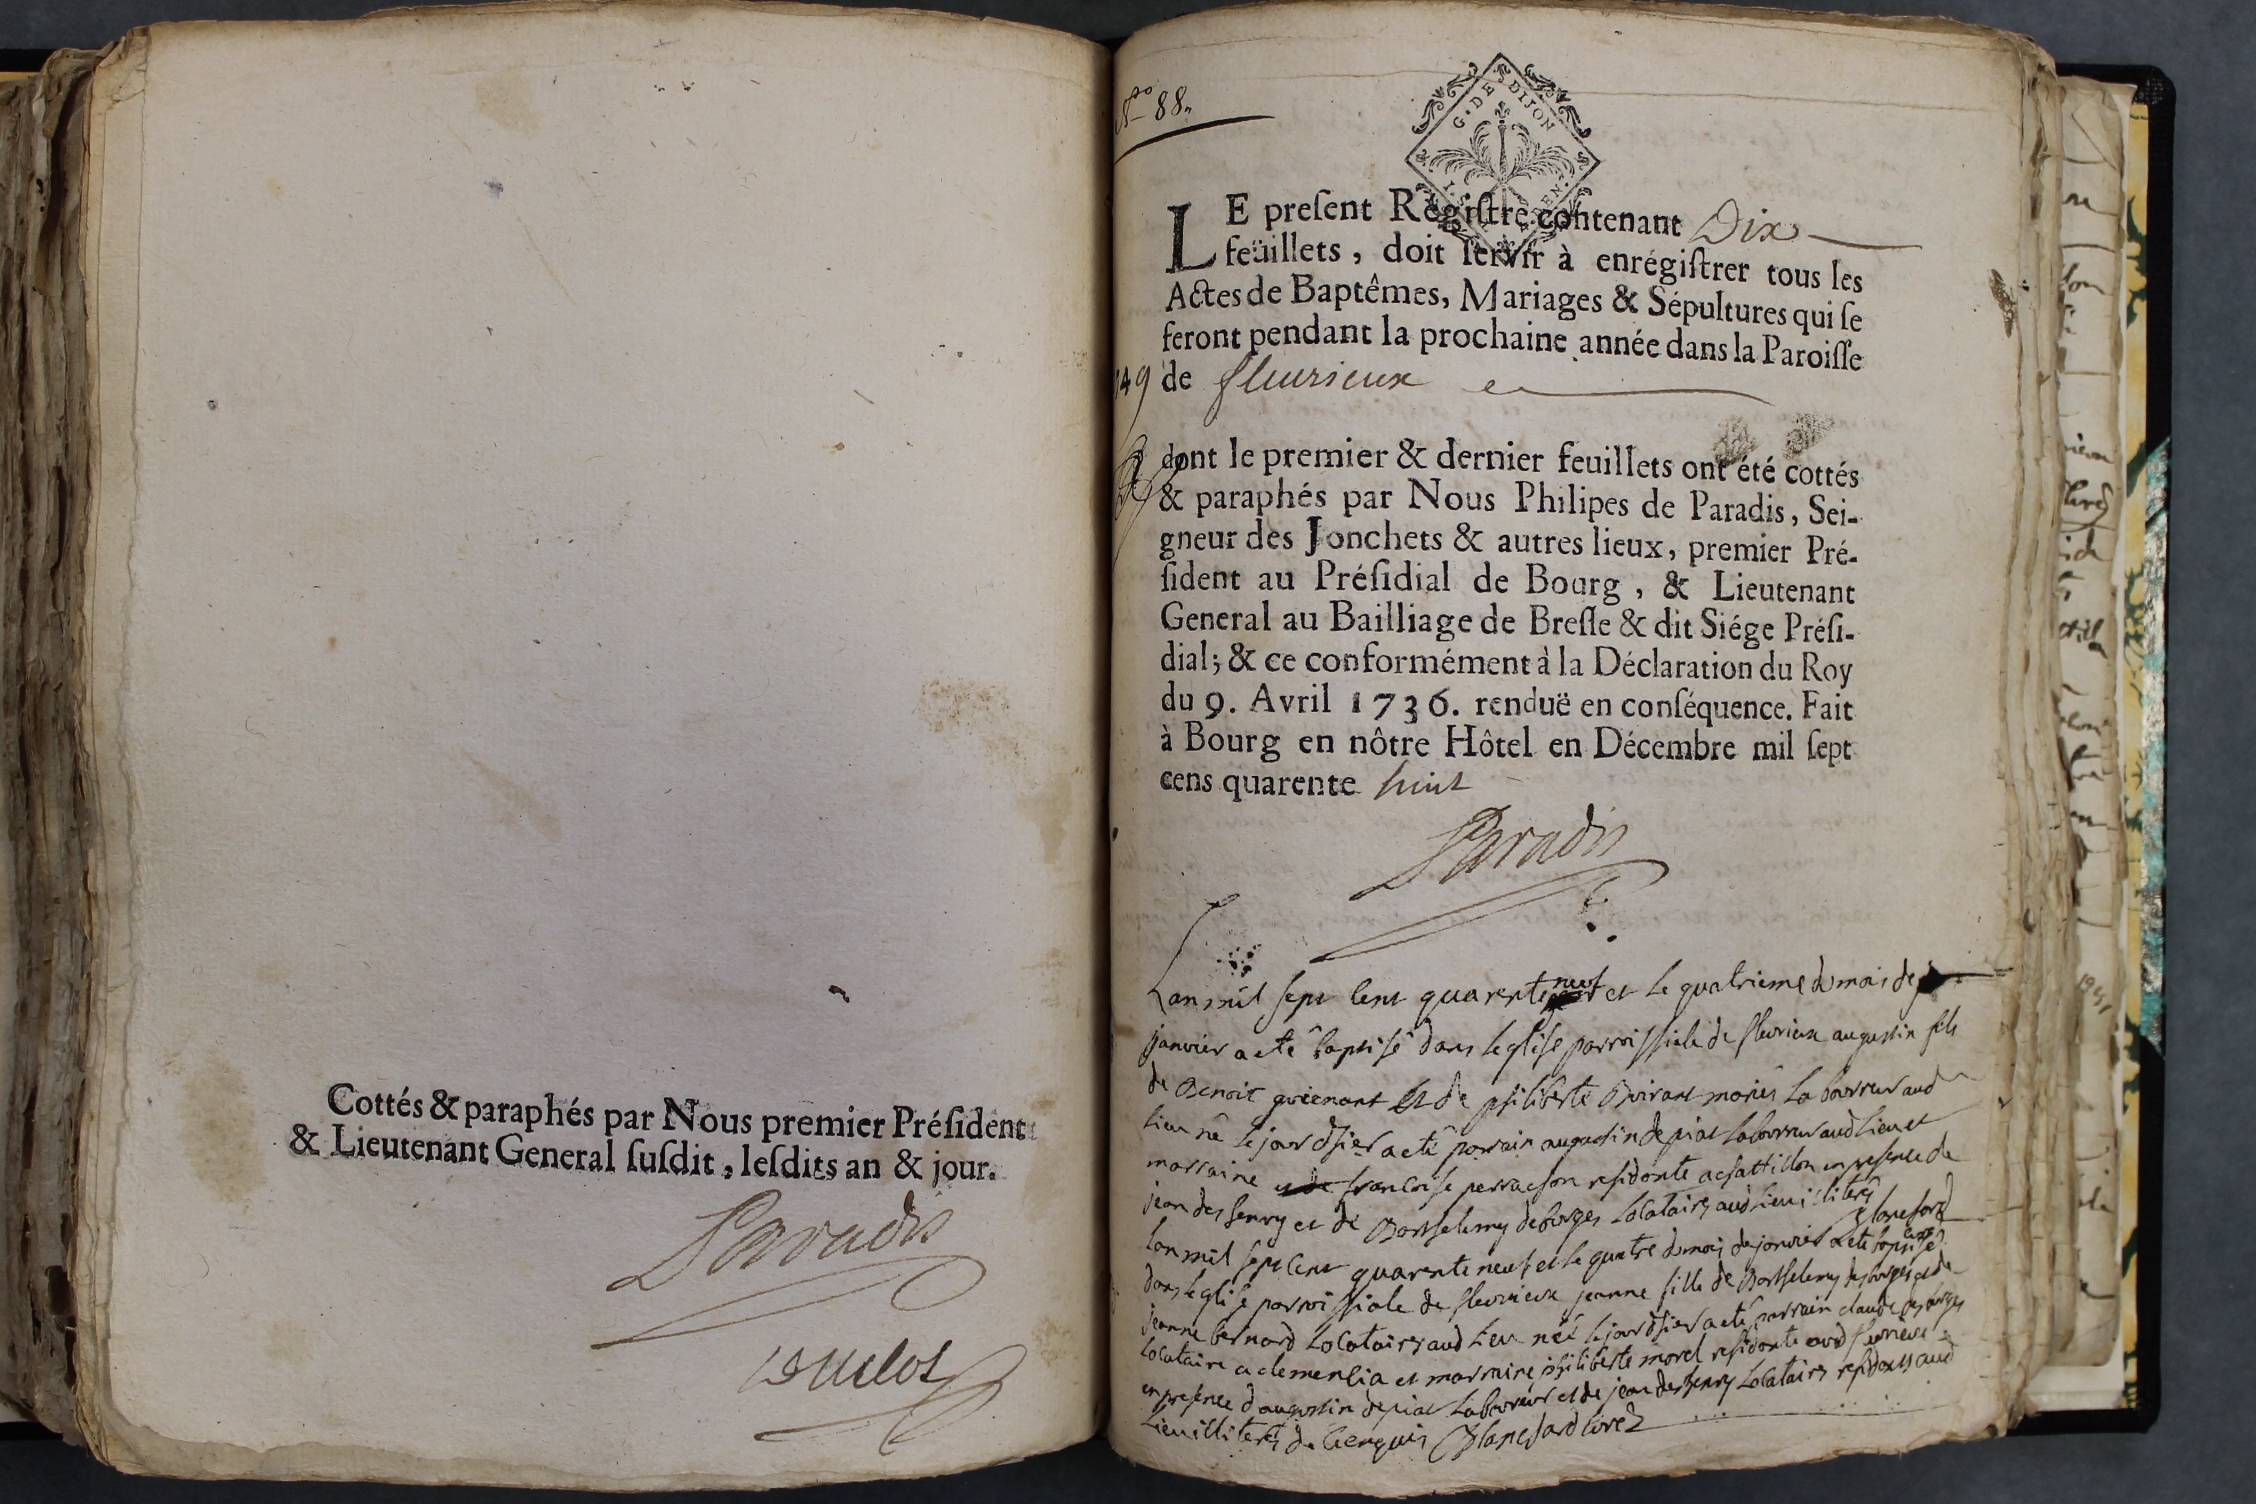 Cottés & paraphés par Nous premier Préſident
& Lieutenant General ſuſdit, leſdits an & jour.
Paradis
N.º 88.
G. DE DIJON
LE preſent Regiſtre contenant Dix
feüillets, doit ſervir à enrégiſtrer tous les
Actes de Baptêmes, Mariages & Sépultures qui ſe
feront pendant la prochaine année dans la Paroiſſe
149
de fleurieux
dont le premier & dernier feuillets ont été cottés
& paraphés par Nous Philipes de Paradis, Sei-
gneur des Jonchets & autres lieux, premier Pré-
ſident au Préſidial de Bourg, & Lieutenant
General au Bailliage de Breſſe & dit Siége Préſi-
dial; & ce conformément à la Déclaration du Roy
du 9. Avril 1736. renduë en conſéquence. Fait
à Bourg en nôtre Hôtel en Décembre mil ſept
cens quarente huit
Paradis
Lan mil sept cent quarente neuf et le quatrieme du mois de
janvier a eté baptisé dans leglise parroissiale de fleurieux augustin fils
de Benoit et de philiberte mariés laboureur aud
lieu né le jour dhier a eté parrain augustin depiat laboureur aud lieu et
marraine francoise perrachon residente a chattillon en presence de
jean deshenry et de Barthelemy deborges locataires aud lieu illiterés
Blanchard
lan mil sept cent quarente neuf et le quatre du mois de janvier a eté baptisé
dans leglise parroissiale de fleurieux jeanne fille de Barthelemy desborges et de
jeanne bernard locataires aud lieu néé le jour dhier a eté parrain claude
locataire a clemencia et marraine philiberte morel residente aud fleurieux
en presence daugustin depiat laboureur et de jean deshenry locataires residents aud
lieu illiterés de ce enquis Blanchard curé